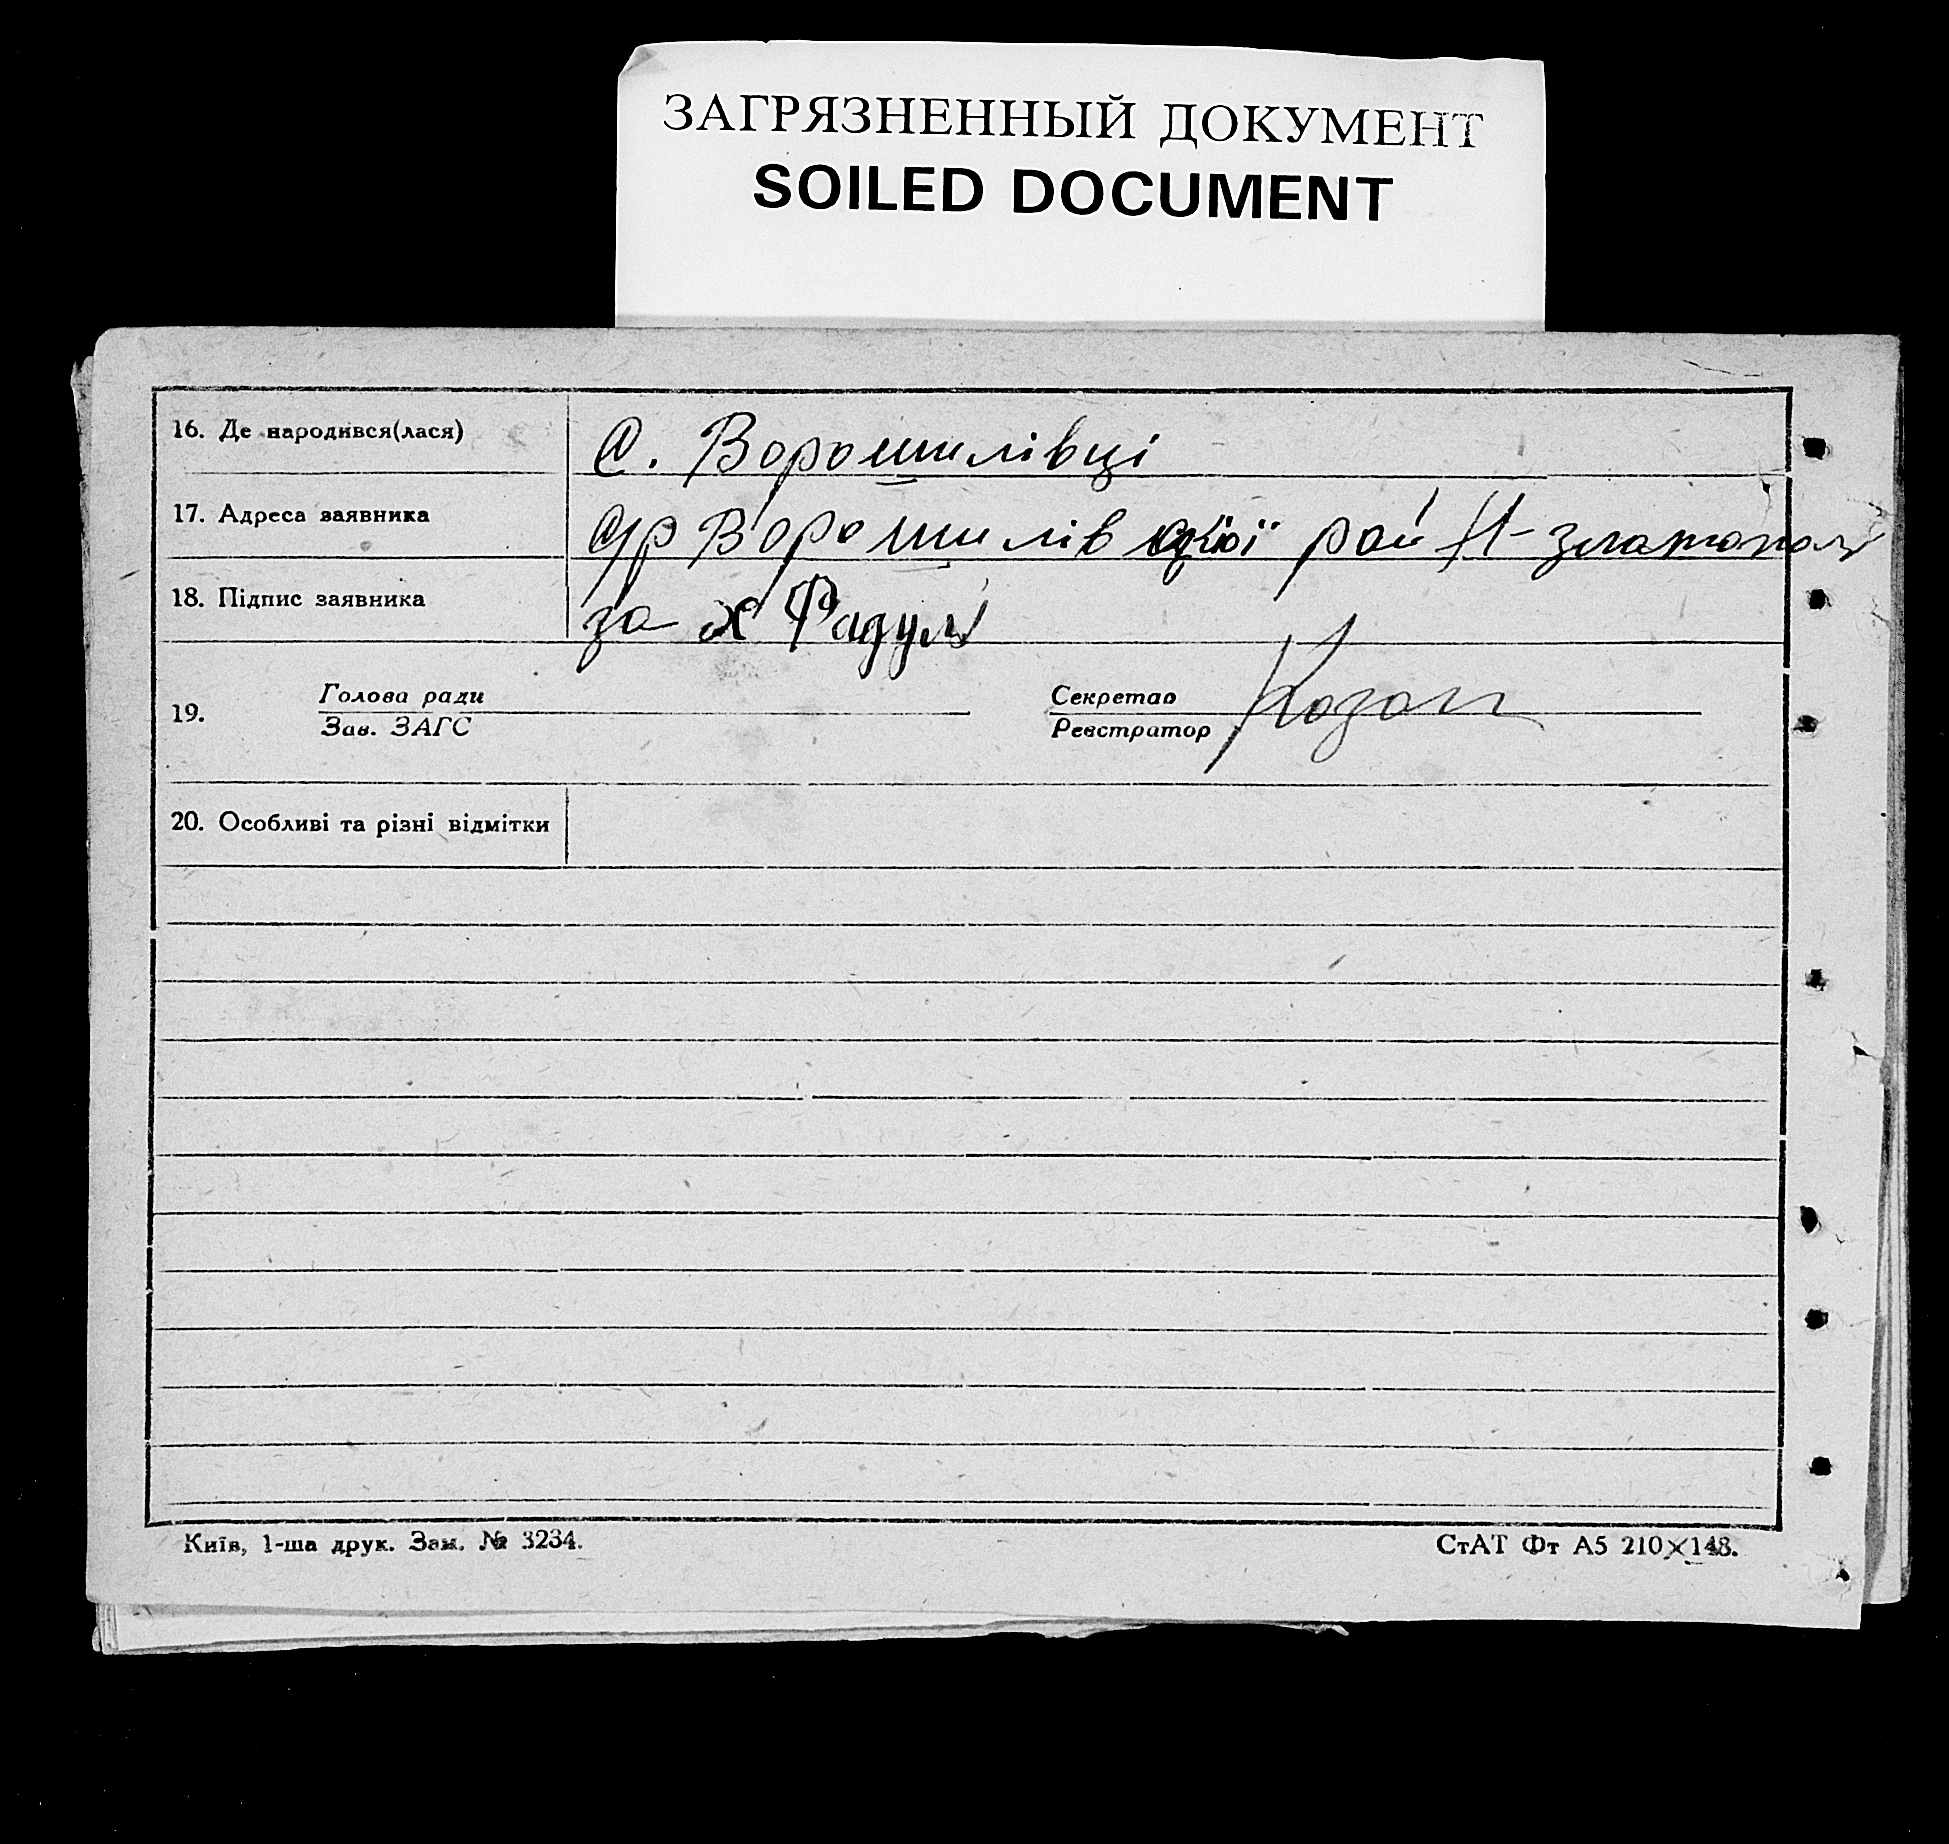 ЗАГРЯЗНЕННЫЙ ДОКУМЕНТ
SOILED DOCUMENT
16. Де народився(лася) С. Ворошилівці
17. Адреса заявника с/р Ворошилівської рай Н-златополь
18. Підпис заявника за х Фадуль
19. Голова ради Секретар
Зав. ЗАГС Реєстратор
20. Особливі та різні відмітки
Київ, 1-ша друк. Зам. № 3234. СтАТ Фт А5 210×148.